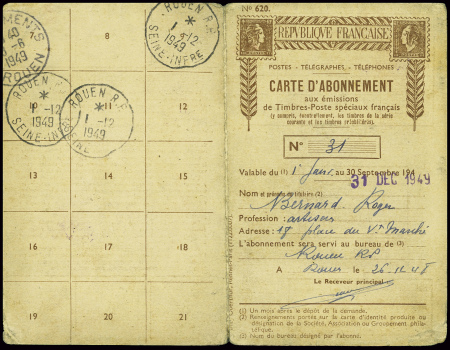 MENTS
40
-6
1949
ROUEN
ROUEN R.P.
*
1 -12
1949
SEINE-INFRE
ROUEN R.P.
*
1 -12
1949
SEINE-INFRE
ROUEN R.P.
*
1 -12
1949
SEINE
10 11 12
13 14 15
16 17 18
19 20 21
No 620.
RÉPUBLIQUE FRANÇAISE
POSTES - TÉLÉGRAPHES - TÉLÉPHONES
CARTE D'ABONNEMENT
aux émissions
de Timbres-Poste spéciaux français
(y compris, éventuellement, les timbres de la série
courante et les timbres préoblitérés).
No 31
Valable du (1) 1er Janv. au 30 Septembre 194
31 DEC 1949
Nom et prénoms du titulaire (2)
Bernard Roger
Profession :
Adresse : 18 place du Vx Marché
L'abonnement sera servi au bureau de (3)
Rouen RP
A Rouen le 26-11-48
Le Receveur principal
(1) Un mois après le dépôt de la demande.
(2) Renseignements portés sur la carte d'identité produite ou
désignation de la Société, Association ou Groupement phila-
télique.
(3) Nom du Bureau désigné par l'abonné.